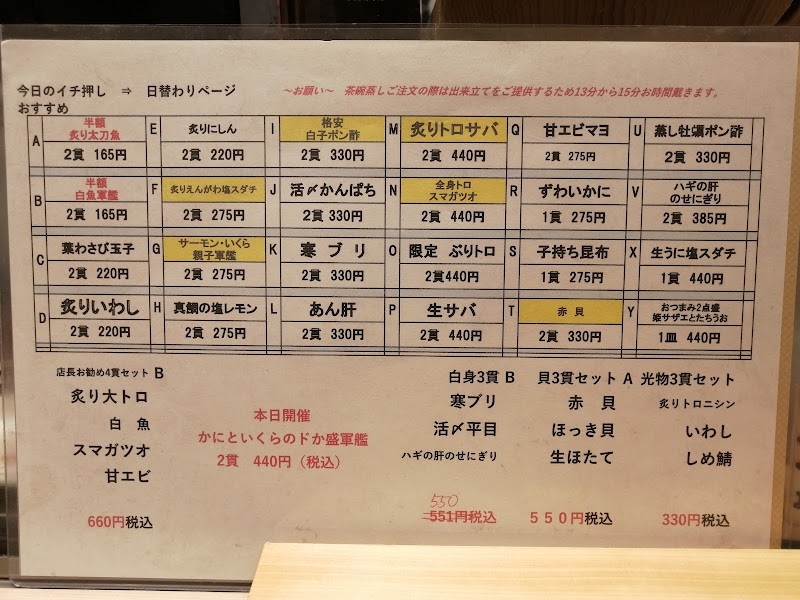 今日のイチ押し ⇒ 日替わりページ
～お願い～ 茶碗蒸しご注文の際は出来立てをご提供するため13分から15分お時間戴きます。
おすすめ
A
半額
炙り太刀魚
2貫 165円
E
炙りにしん
2貫 220円
I
格安
白子ポン酢
2貫 330円
M
炙りトロサバ
2貫 440円
Q
甘エビマヨ
2貫 275円
U
蒸し牡蠣ポン酢
2貫 330円
B
半額
白魚軍艦
2貫 165円
F
炙りえんがわ塩スダチ
2貫 275円
J
活〆かんぱち
2貫 330円
N
全身トロ
スマガツオ
2貫 440円
R
ずわいかに
1貫 275円
V
ハギの肝
のせにぎり
2貫 385円
C
葉わさび玉子
2貫 220円
G
サーモン・いくら
親子軍艦
2貫 275円
K
寒 ブ リ
2貫 330円
O
限定 ぶりトロ
2貫440円
S
子持ち昆布
1貫 275円
X
生うに塩スダチ
1貫 440円
D
炙りいわし
2貫 220円
H
真鯛の塩レモン
2貫 275円
L
あん肝
2貫 330円
P
生サバ
2貫 440円
T
赤 貝
2貫 330円
Y
おつまみ2点盛
姫サザエとたちうお
1皿 440円
店長お勧め4貫セット B
炙り大トロ
白 魚
スマガツオ
甘エビ
660円税込
本日開催
かにといくらのドか盛軍艦
2貫 440円（税込）
白身3貫 B
寒ブリ
活〆平目
ハギの肝のせにぎり
550
551円税込
貝3貫セット A
赤 貝
ほっき貝
生ほたて
５５０円税込
光物3貫セット
炙りトロニシン
いわし
しめ鯖
330円税込